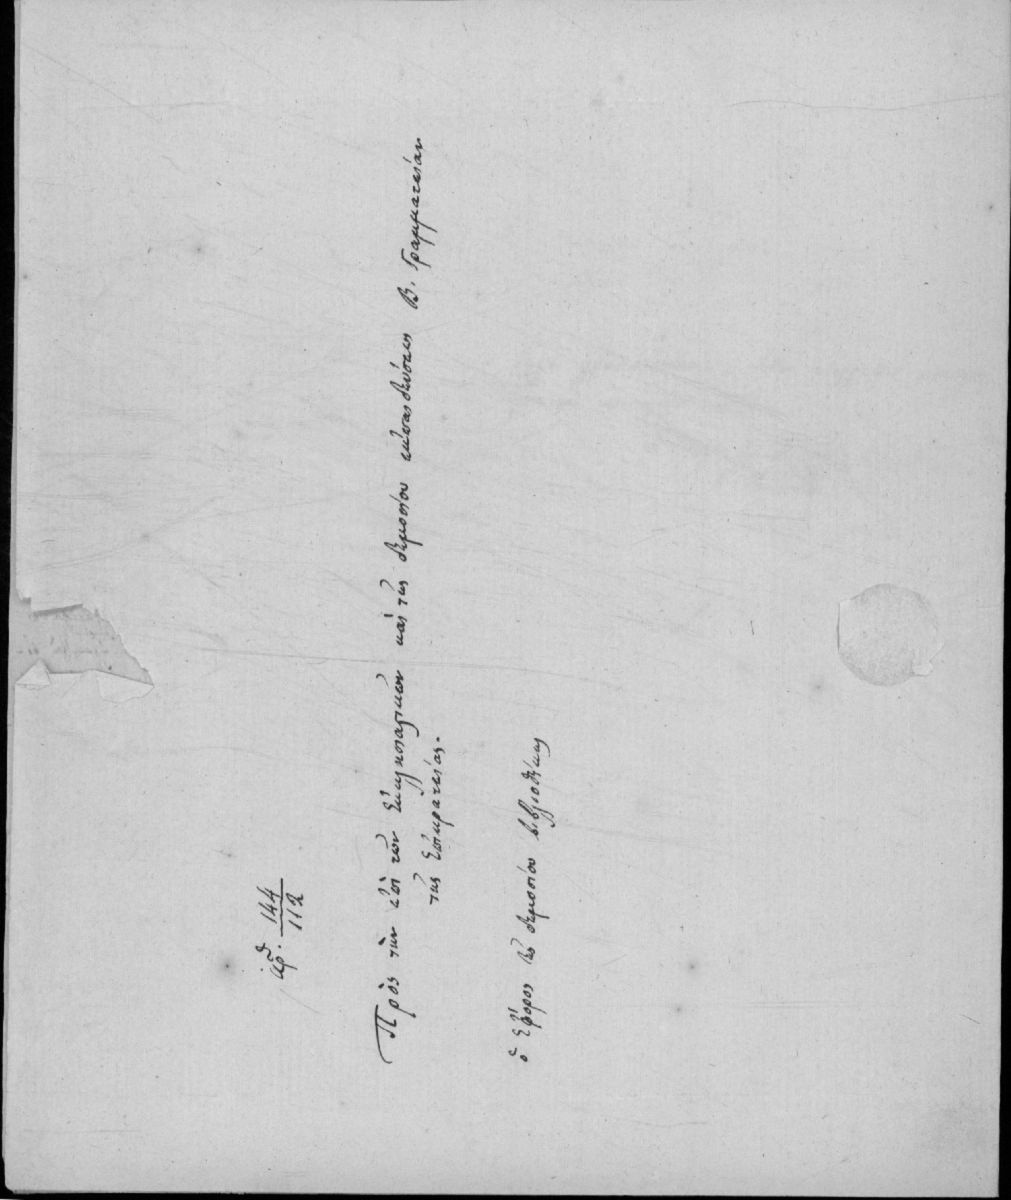 ἀρθ. 144/112
Πρὸς τὴν ἐπὶ τῶν Ἐκκλησιαστικῶν καὶ τῆς δημοσίου ἐκπαιδεύσεως Β. Γραμματείαν
τῆς Ἐπικρατείας.
ὁ Ἔφορος τῆς δημοσίου βιβλιοθήκης